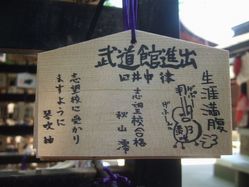 武道館進出
田井中 律
生涯満腹
志望校合格
秋山 澪
志望校に受かり
ますように
琴吹 紬